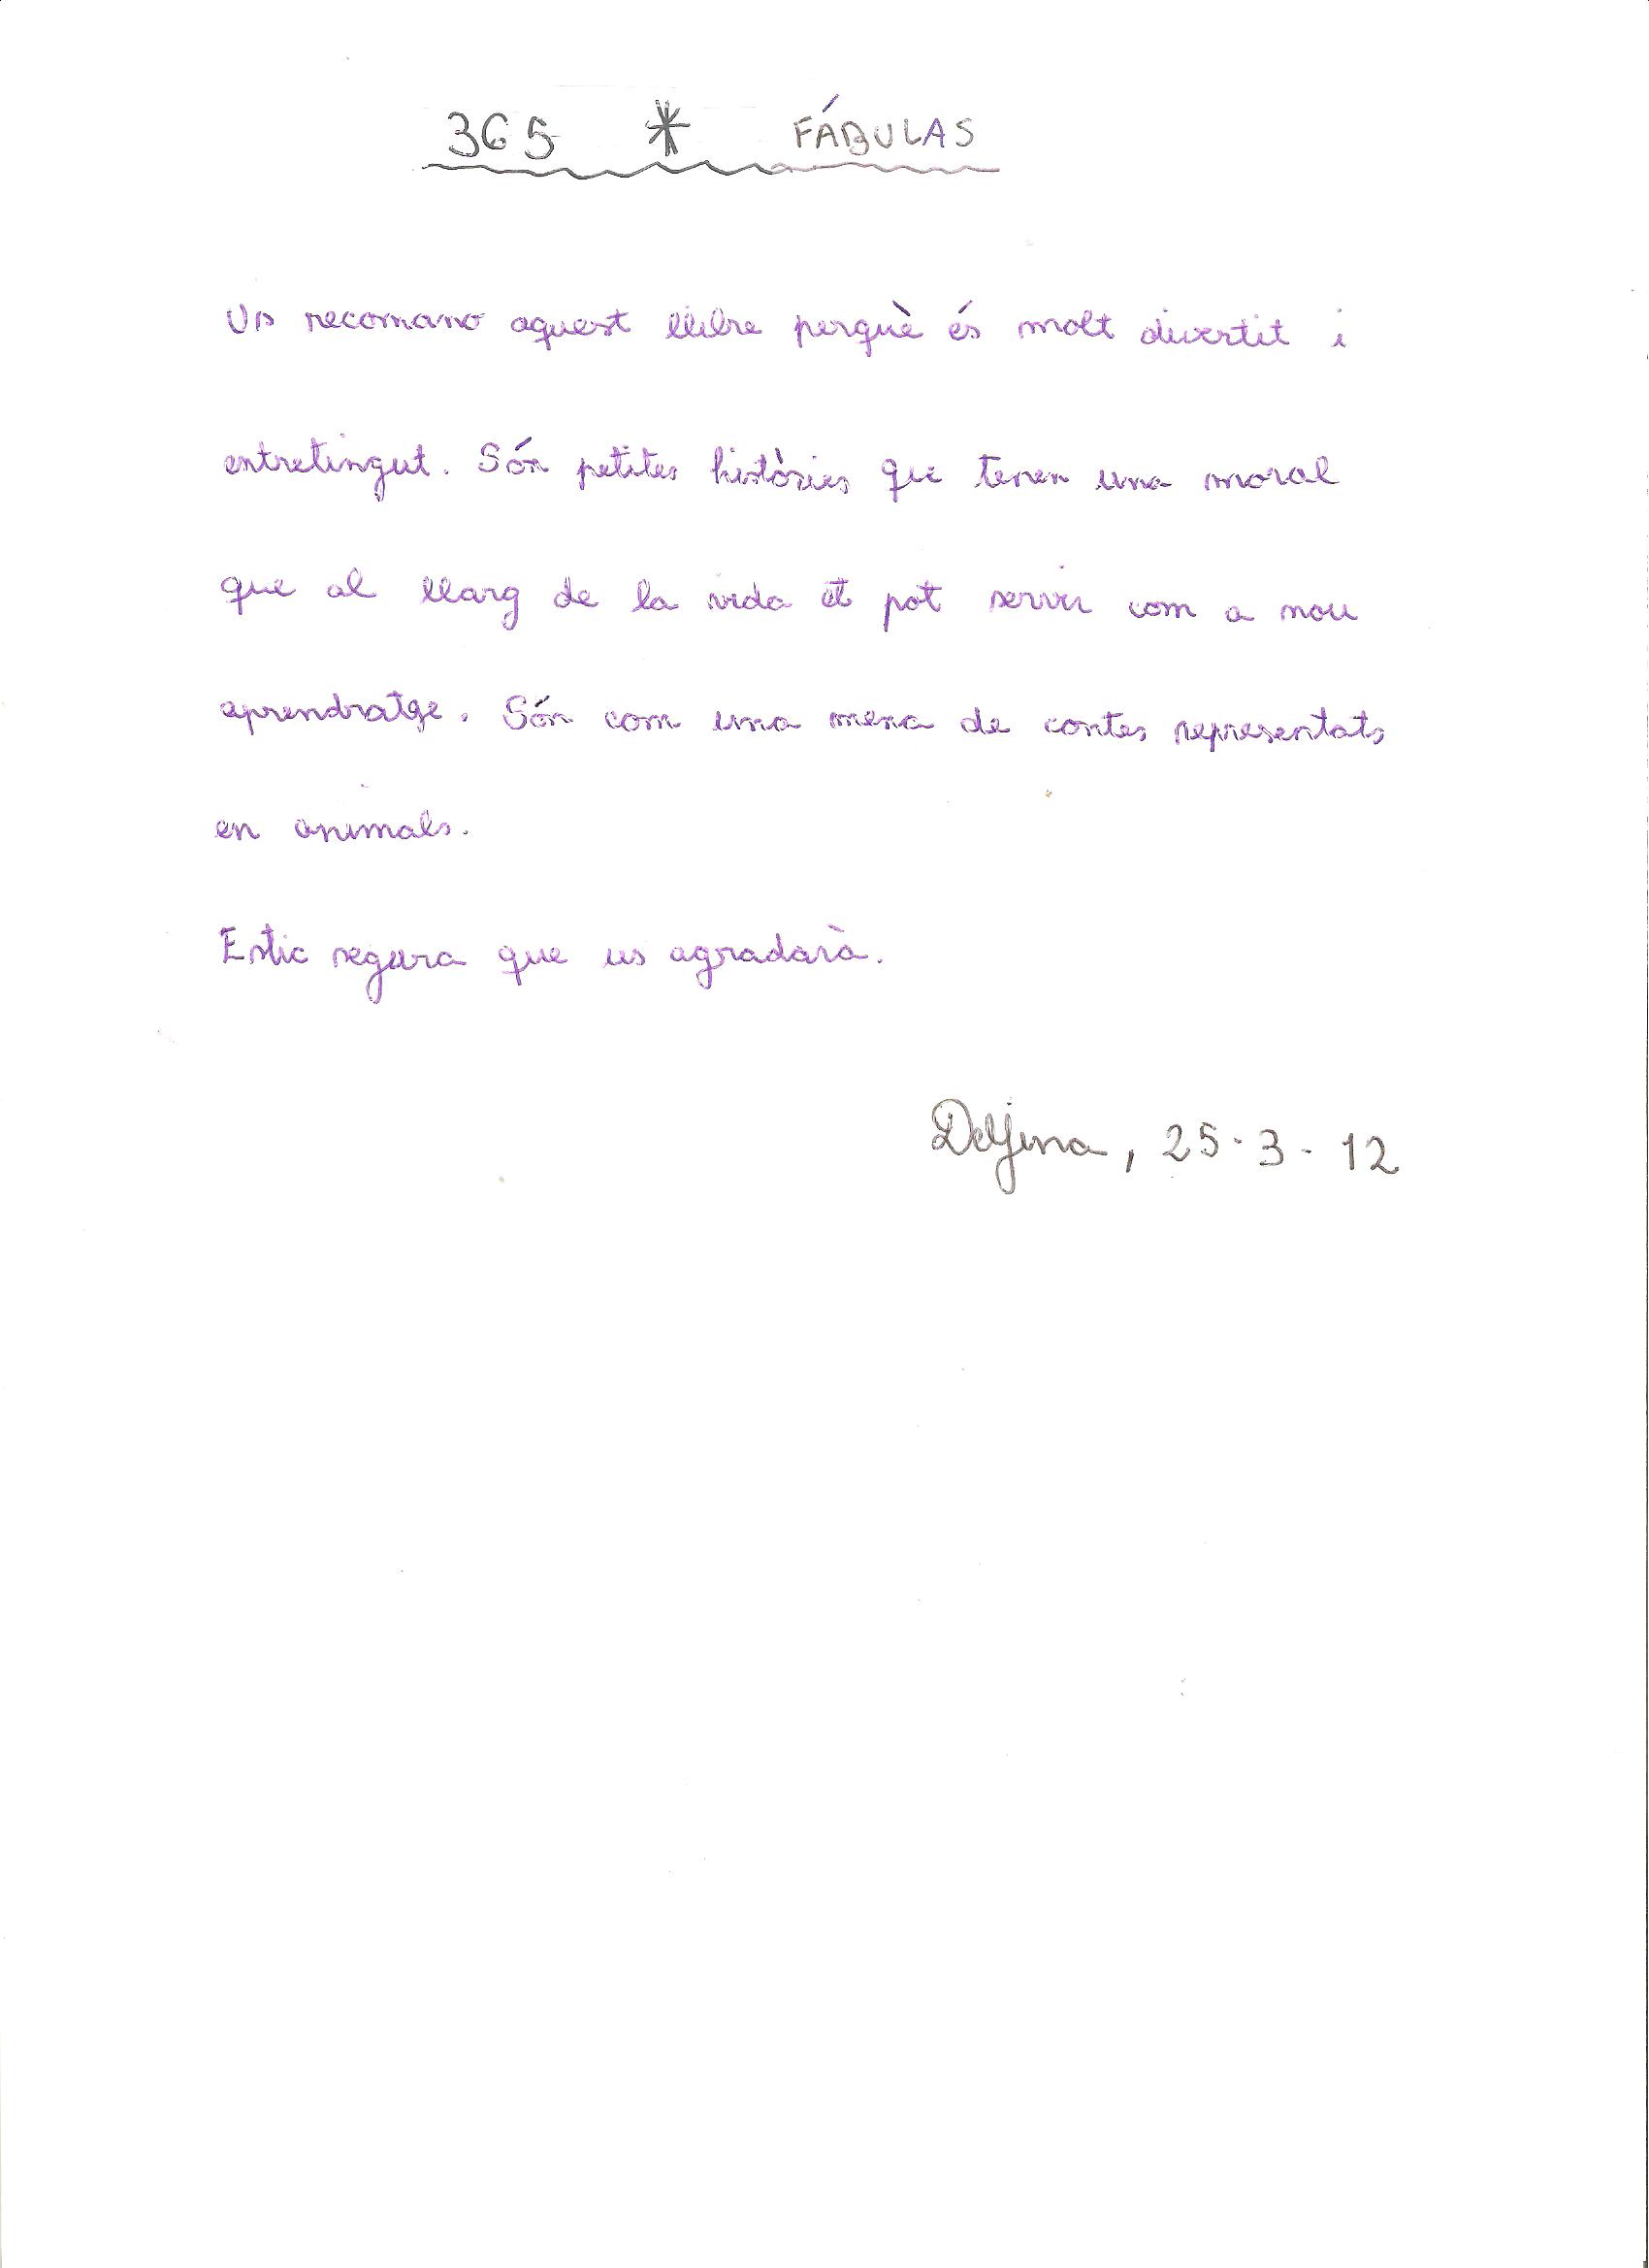 365 * FÁBULAS
Us recomano aquest llibre perquè és molt divertit i
entretingut. Són petites històries que tenen una moral
que al llarg de la vida et pot servir com a nou
aprendratge. Són com una mena de contes representats
en animals.
Estic segura que us agradarà.
Delfina, 25-3-12